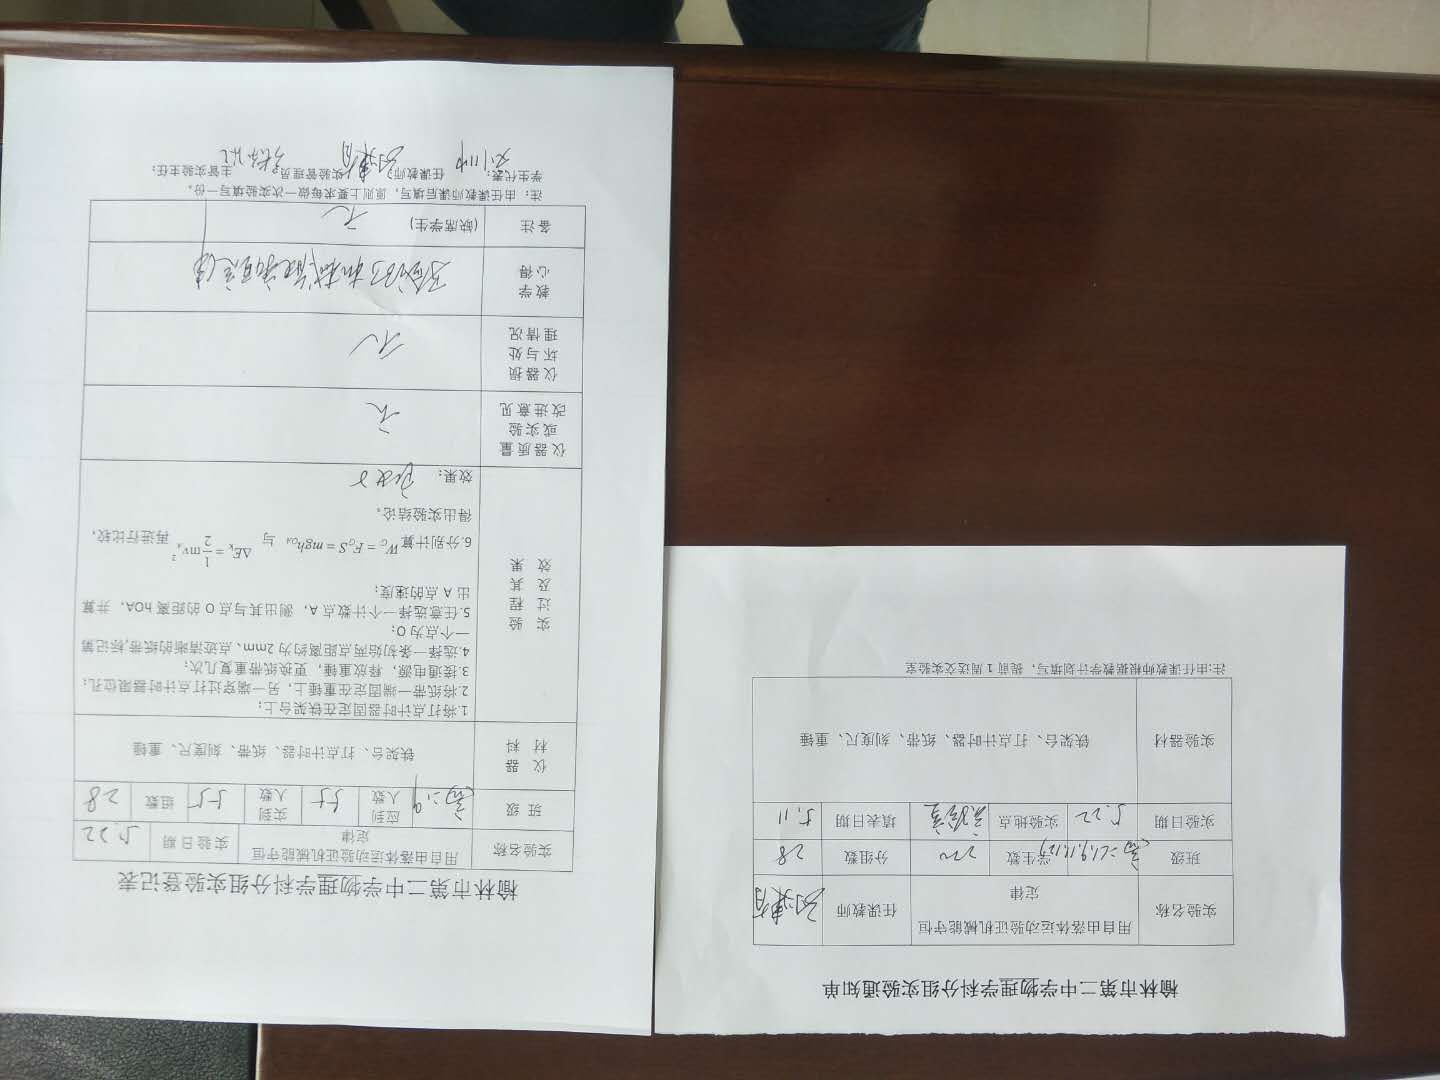 榆林市第二中学物理学科分组实验登记表
实验名称 用自由落体运动验证机械能守恒定律 实验日期 5.22
班级 高二.9 应到人数 55 实到人数 55 组数 28
仪器材料 铁架台、打点计时器、纸带、刻度尺、重锤
实验过程及其效果
1.将打点计时器固定在铁架台上；
2.将纸带一端固定在重锤上，另一端穿过打点计时器限位孔；
3.接通电源，释放重锤，更换纸带重复几次；
4.选择一条初始两点距离约为2mm、点迹清晰的纸带,标记第
一个点为O；
5.任意选择一个计数点A，测出其与点O的距离hOA，并算
出A点的速度；
6.分别计算 W_G = F_G S = mgh_OA 与 ΔE_k = 1/2 mv_A² 再进行比较，
得出实验结论。
效果：
仪器质量或实验改进意见 无
仪器损坏与处理情况 无
教学心得 验证机械能守恒定律
备注 (缺席学生) 无
注：由任课教师课后填写，原则上要求每做一次实验填写一份。
学生代表： 任课教师： 实验管理员： 主管实验主任：
榆林市第二中学物理学科分组实验通知单
实验名称 用自由落体运动验证机械能守恒定律 任课教师
班级 学生数 220 分组数 28
实验日期 5.22 实验地点 实验室 填表日期 5.11
实验器材 铁架台、打点计时器、纸带、刻度尺、重锤
注:由任课教师根据教学计划填写，提前1周送交实验室